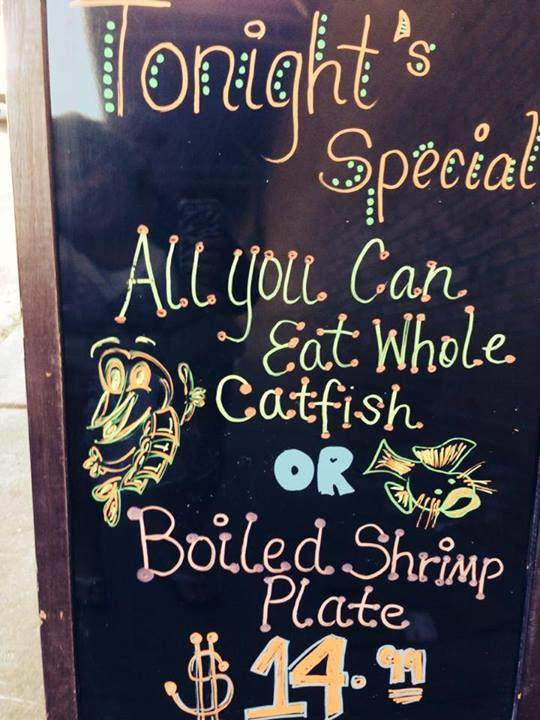 Tonight's
Special
All you Can
Eat Whole
Catfish
OR
Boiled Shrimp
Plate
$14.99